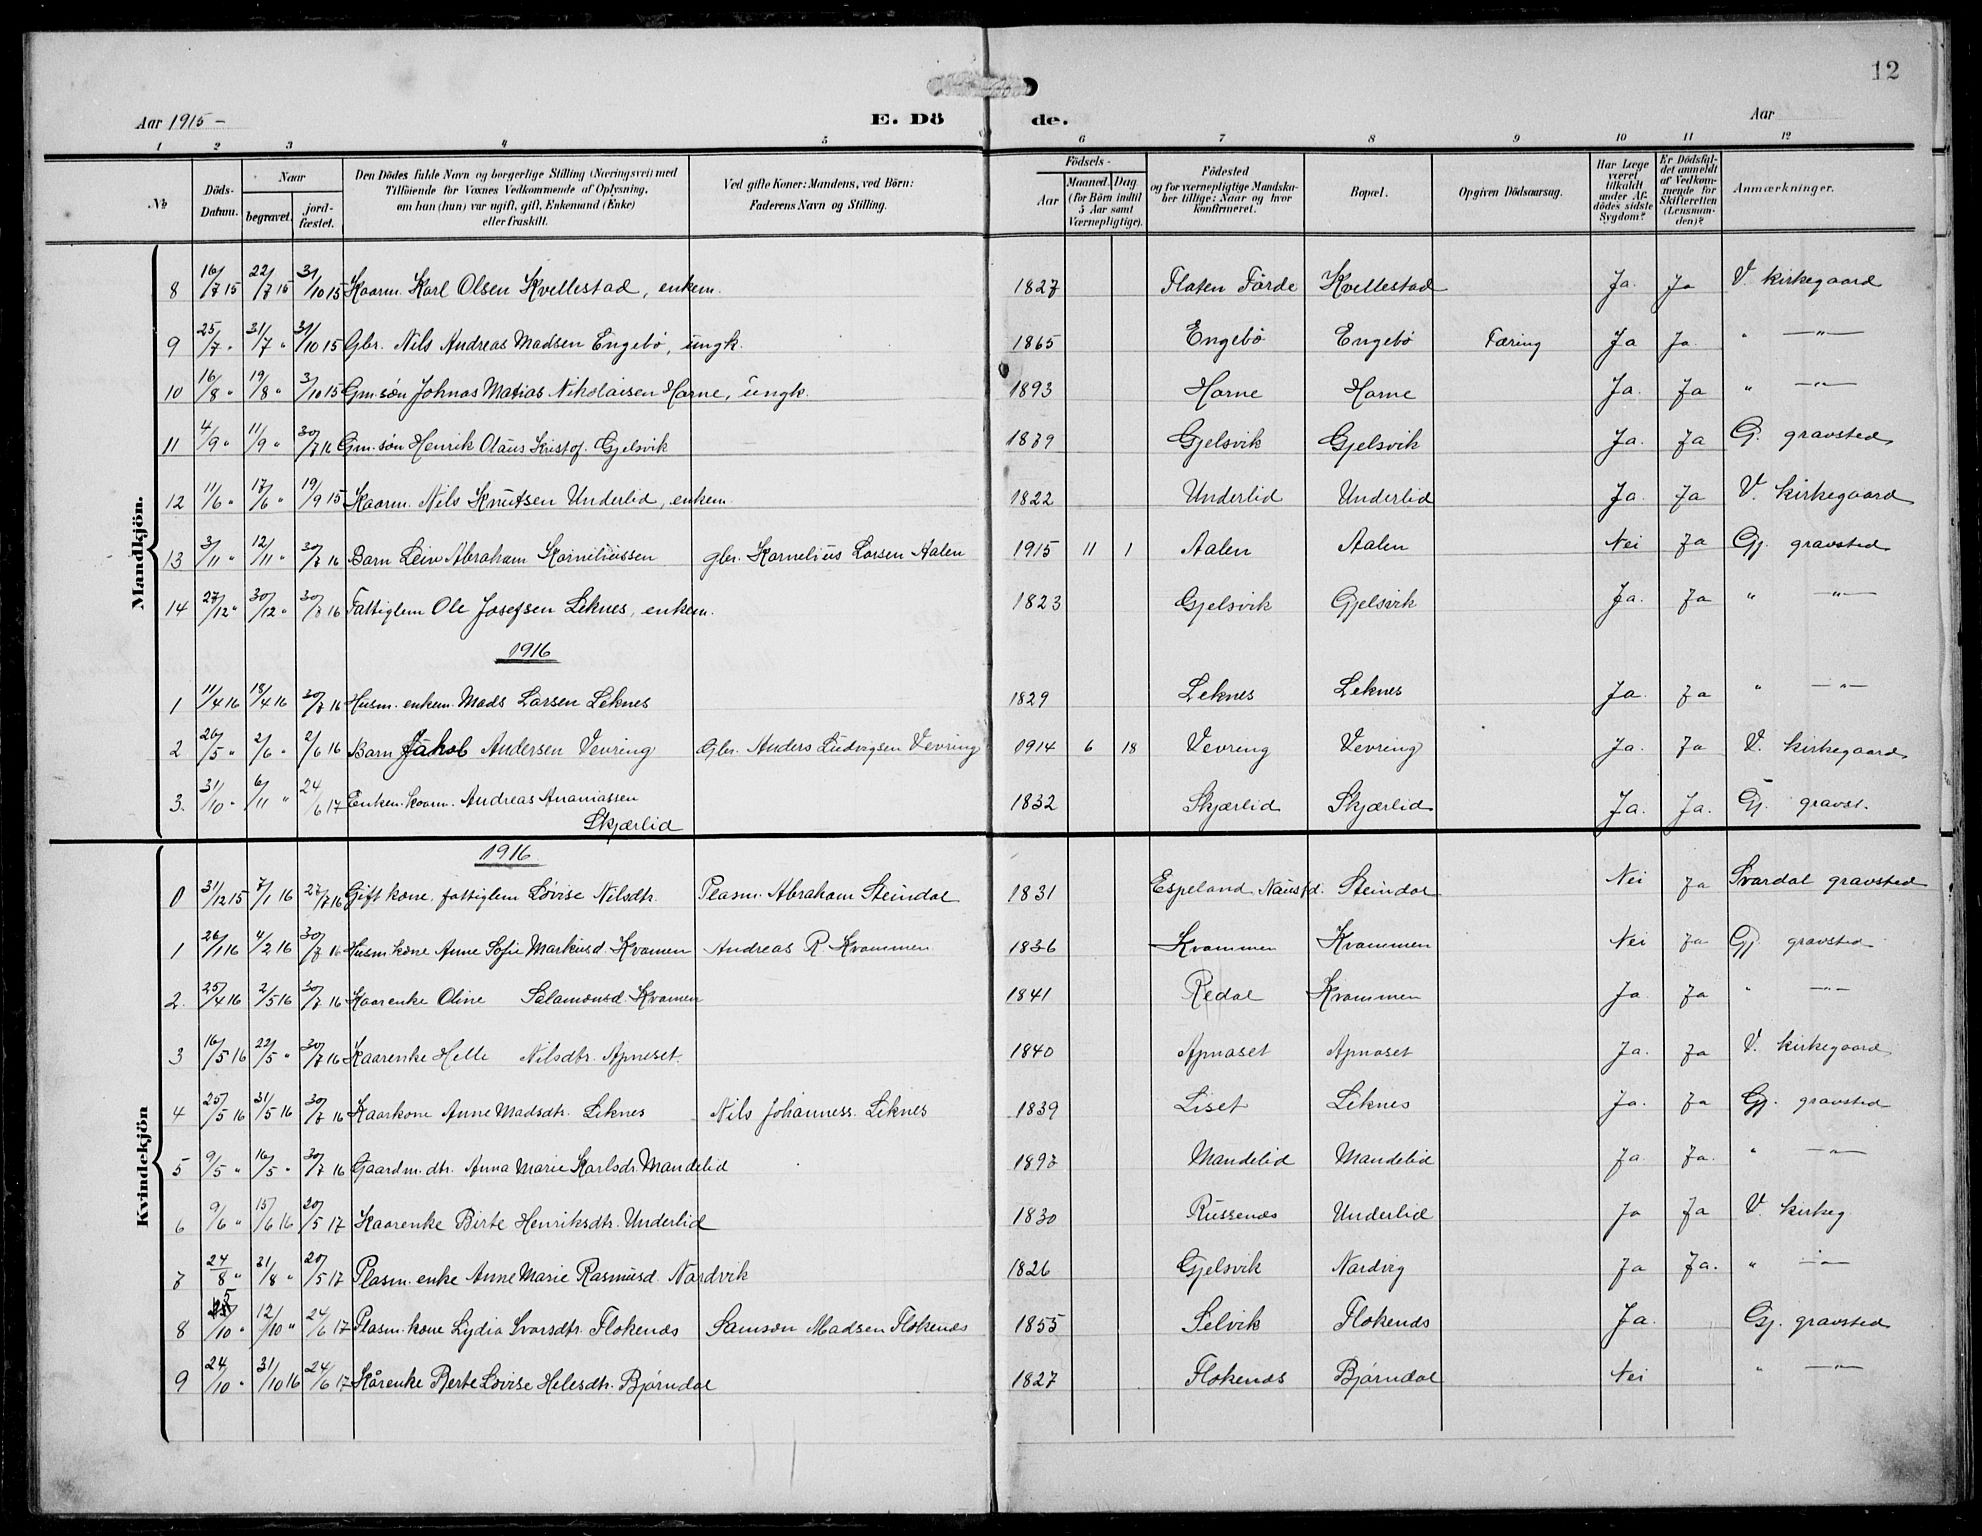 12
Aar 1915 – E. Dö de. Aar
1 2 3 4 5 6 7 8 9 10 11 12
No
Döds-Datum.
Naar
begravet. jord-fæstet.
Den Dödes fulde Navn og borgerlige Stilling (Næringsvei) med
Tilföiende for Voxnes Vedkommende af Oplysning,
om han (hun) var ugift, gift, Enkemand (Enke)
eller fraskilt.
Ved gifte Koner: Mandens, ved Börn:
Faderens Navn og Stilling.
Födsels-
Aar Maaned. Dag
(for Börn indtil 5 Aar samt Værnepligtige).
Födested
og for værnepligtige Mandska-
ber tillige: Naar og hvor
konfirmeret.
Bopæl.
Opgiven Dödsaarsag.
Har Læge været tilkaldt under Af-dödes sidste Sygdom?
Er Dödsfal-det anmeldt af Vedkom-mende for Skifteretten (Lensman-den)?
Anmærkninger.
Mandkjön.
8 16/7 15 22/7 15 31/10 15 Kaarm. Karl Olsen Kvellestad, enkem. 1827 Flaten Förde Kvellestad Ja. Ja V. kirkegaard
9 25/7 " 31/7 " 31/10 15 Gbr. Nils Andreas Madsen Engebö, ungk. 1865 Engebö Engebö Tæring Ja Ja. " —"—
10 16/8 " 19/8 " 3/10 15 Gm. sön Johnas Matias Nikolaisen Horne, ungk. 1893 Horne Horne Ja. Ja " —"—
11 4/9 " 11/9 " 30/7 16 Gm. sön Henrik Olaus Kristof. Gjelsvik 1879 Gjelsvik Gjelsvik Ja. Ja G. gravsted
12 11/6 " 17/6 " 19/9 15 Kaarm. Nils Knutsen Underlid, enkem. 1822 Underlid Underlid Ja. Ja V. kirkegaard
13 3/11 " 12/11 " 30/7 16 Barn Leiv Abraham Korneliussen gbr. Kornelius Larsen Aalen 1915 11 1 Aalen Aalen Nei Ja Gj. gravsted
14 27/12 " 30/12 " 30/7 16 Fattiglem Ole Josefsen Leknes, enkem. 1823 Gjelsvik Gjelsvik Ja. Ja " —"—
1916
1 11/4 16 18/4 16 30/7 16 Husm. enkem. Mads Larsen Leknes 1829 Leknes Leknes Ja. Ja " —"—
2 26/5 " 2/6 " 2/6 16 Barn Jakob Andersen Vevring Gbr. Anders Ludvigsen Vevring 1914 6 18 Vevring Vevring Ja. Ja V. kirkegaard
3. 31/10 " 6/11 " 24/6 17 Enkem. kaarm. Andreas Ananiassen
Skjærlid 1832 Skjærlid Skjærlid Ja. Ja. Gj. gravst.
Kvindekjön
1916
0 31/12 15 7/1 16 27/7 16 Gift kone, fattiglem Lovise Nilsdtr. Plasm. Abraham Steindal 1831 Espeland Nausd. Steindal Nei Ja Svardal gravsted
1 26/1 16 4/2 16 30/7 16 Husm. kone Anne Sofie Markusd. Kvamen Andreas R. Kvammen 1836 Kvammen Kvammen Nei Ja Gj. gravsted
2. 25/4 16 2/5 16 30/7 16 Kaarenke Oline Salamonsd. Kvamen 1841 Redal Kvammen Ja Ja " —"—
3 16/5 16 22/5 " 30/7 16 Kaarenke Helle Nilsdtr. Apneset. 1840 Apnaset Apnaset Ja. Ja V. kirkegaard
4 25/5 16 31/5 16 30/7 16 Kaarkone Anne Madsdtr. Leknes Nils Johanness. Leknes 1839 Liset Leknes Ja. Ja Gj. gravsted
5 9/5 " 16/5 " 30/7 16 Gaardm. dtr. Anna Marie Karlsdr. Mandelid 1897 Mandelid Mandelid Ja. Ja. " —"—
6 9/6 " 15/6 16 20/5 17 Kaarenke Birte Henriksdtr. Underlid 1830 Russenes Underlid Ja Ja V. kirkeg.
7 24/8 " 31/8 " 20/5 17 Plasm. enke Anne Marie Rasmusd. Nardvik 1826 Gjelsvik Nardvig Ja Ja. " —"—
8 5/10 " 12/10 " 24/6 17 Plasm. kone Lydia Ivarsdtr. Flokenes Samson Madsen Flokenes 1855 Selvik Flokenes Ja. Gj. gravsted
9 24/10 " 31/10 16 24/6 17 Kårenke Berte Lovise Helesdtr. Bjørndal 1827 Flokenes Bjørndal Nei " —"—